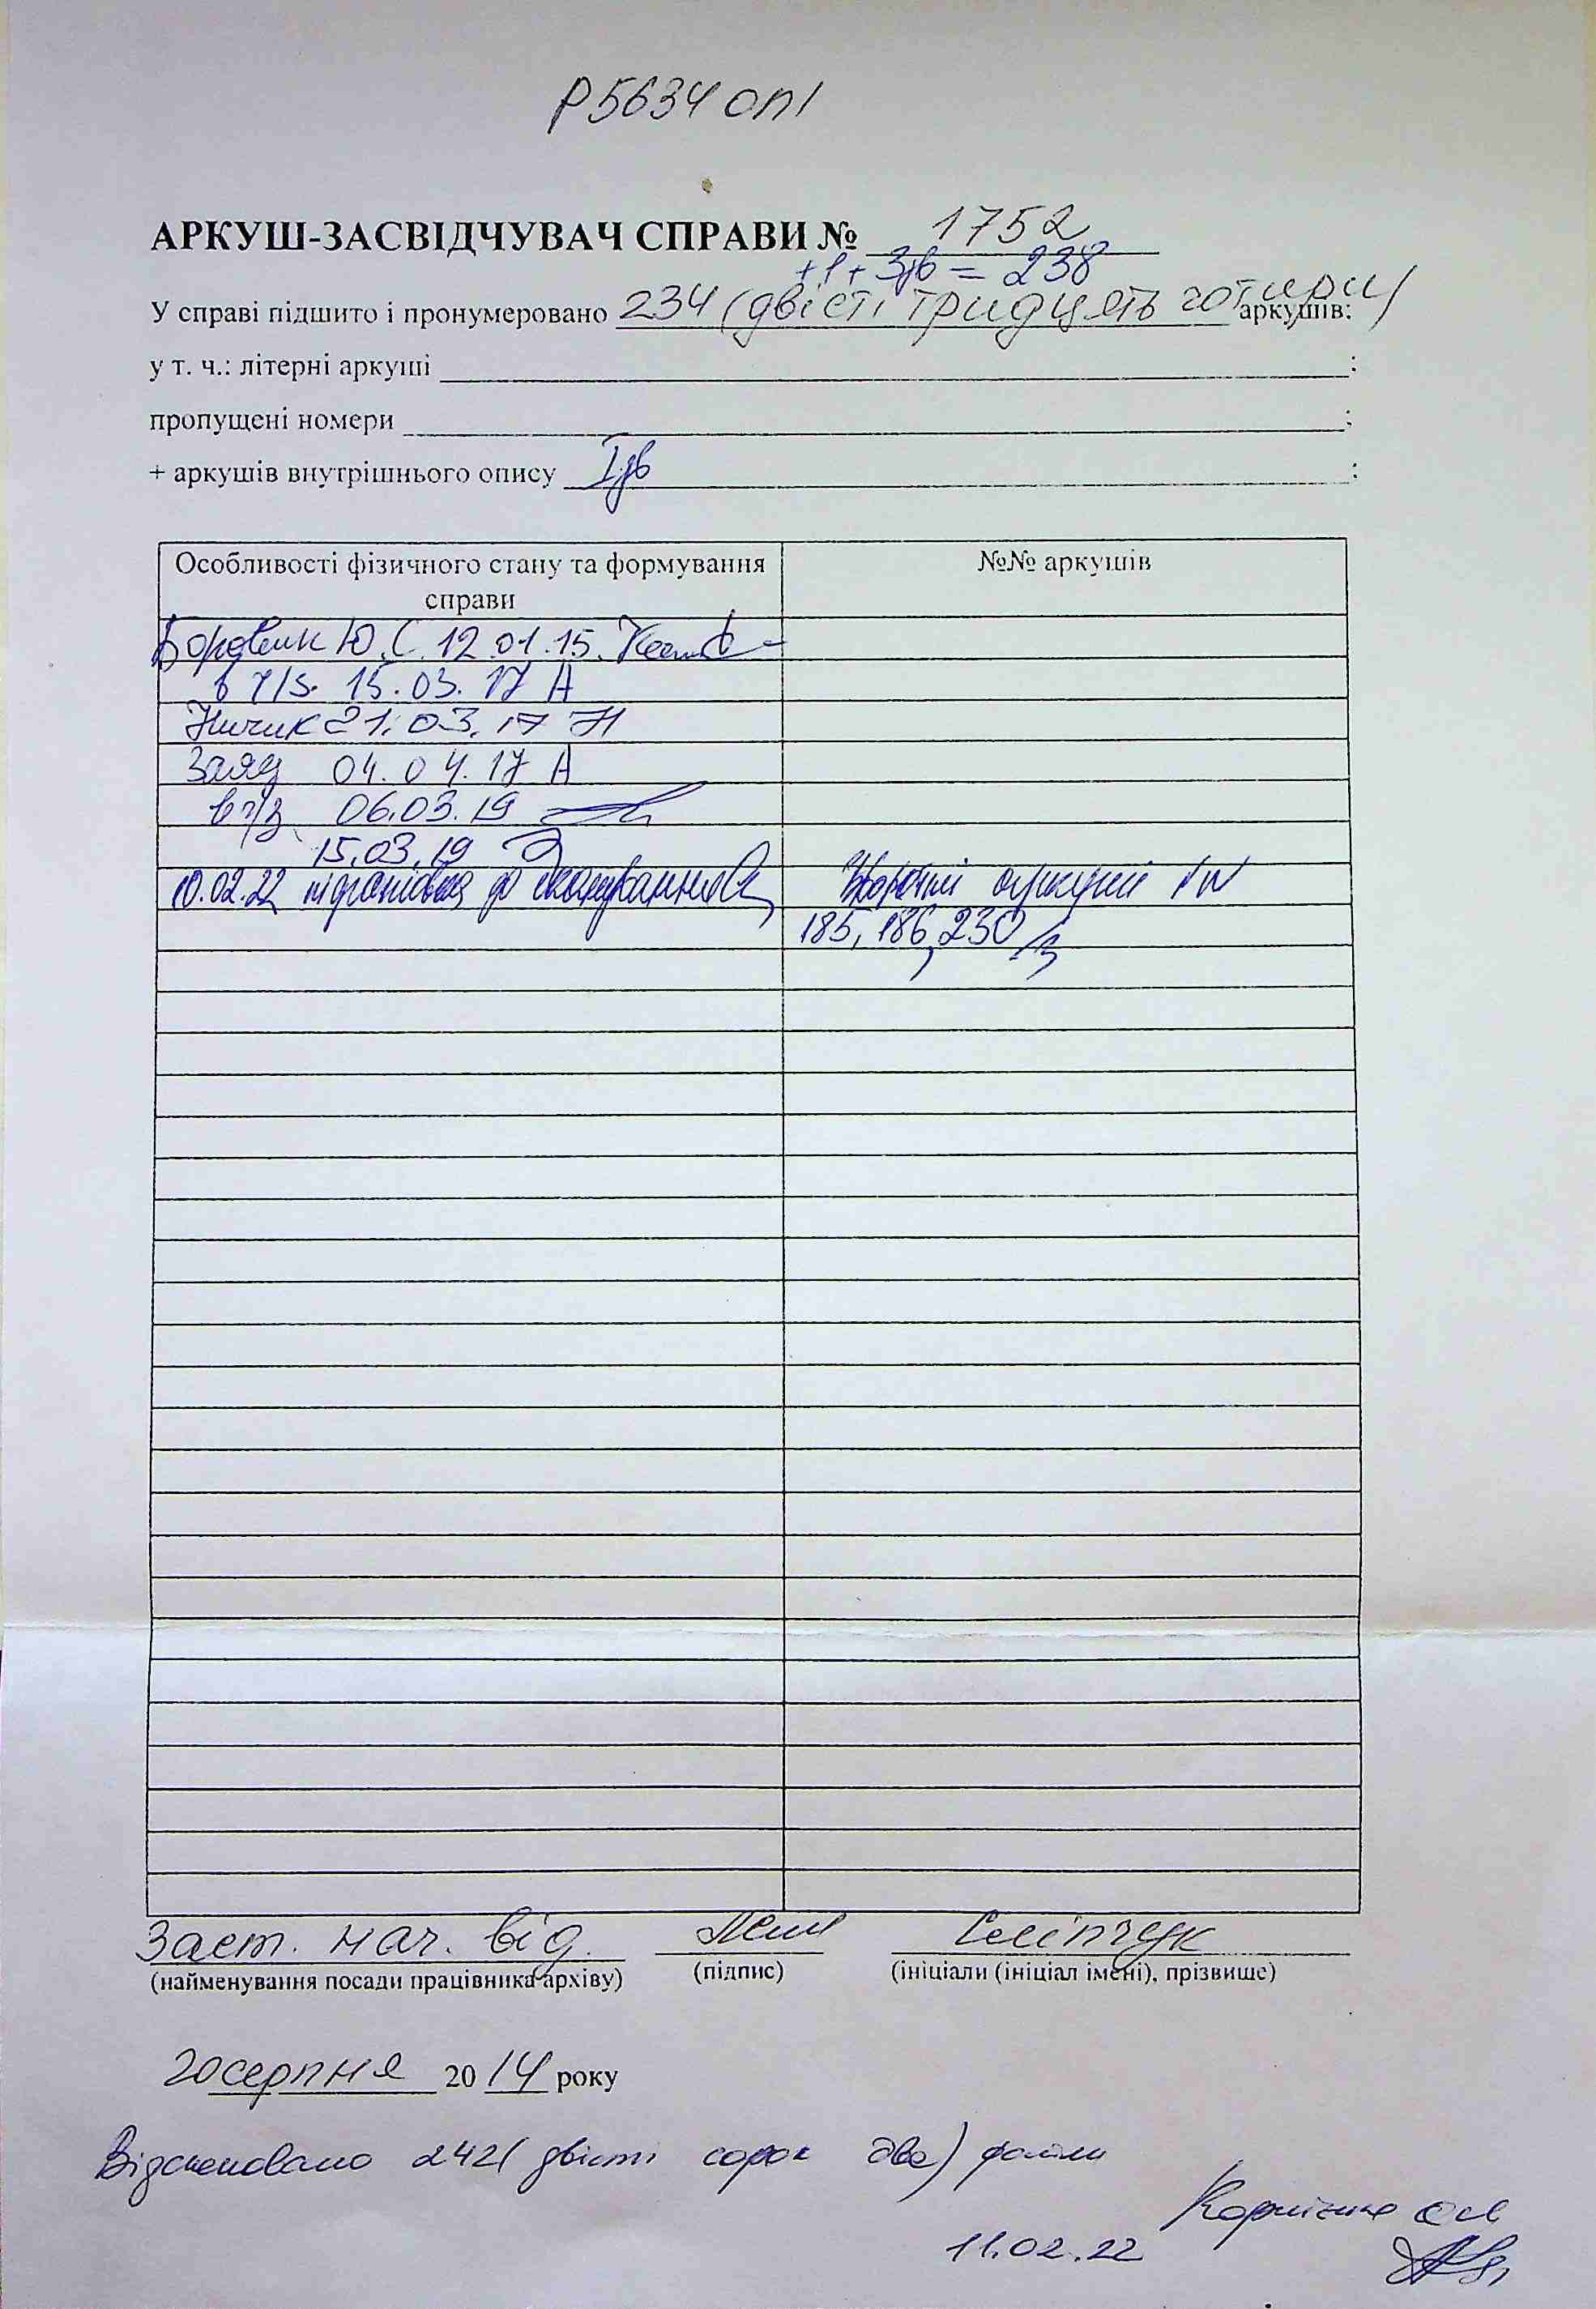 Р5634 оп1
АРКУШ-ЗАСВІДЧУВАЧ СПРАВИ № 1752
+1+3зв = 238
У справі підшито і пронумеровано 234 (двісті тридцять чотири) аркушів:
у т. ч.: літерні аркуші ;
пропущені номери ;
+ аркушів внутрішнього опису 1зв ;
Особливості фізичного стану та формування
справи
№№ аркушів
Боровик Ю.С. 12.01.15.
в ч/з. 15.03.17
21.03.17
04.04.17
в ч/з 06.03.19
15.03.19
10.02.22 підготовка до сканування
Зворотні
185, 186, 230
Заст. нач. від.
(найменування посади працівника архіву)
(підпис)
(ініціали (ініціал імені), прізвище)
20 серпня 2014 року
Відскановано 242 (двісті сорок два) файли
11.02.22